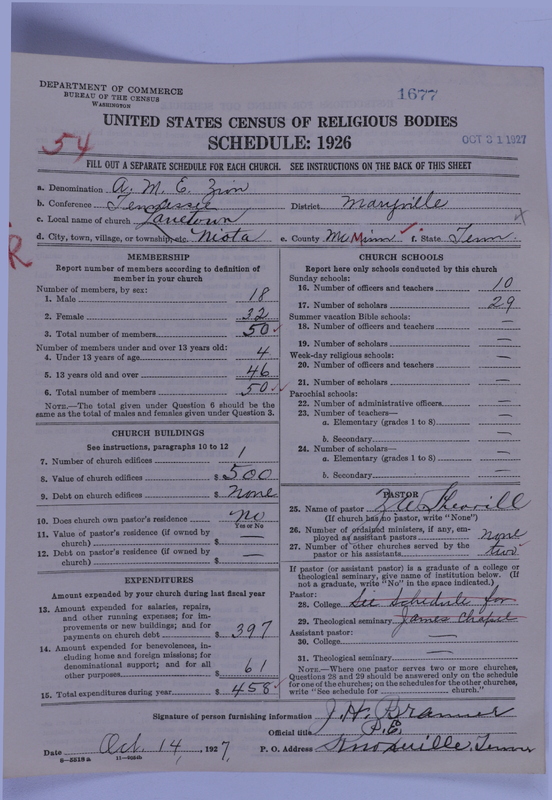 DEPARTMENT OF COMMERCE
BUREAU OF THE CENSUS
WASHINGTON
1677
UNITED STATES CENSUS OF RELIGIOUS BODIES
54
SCHEDULE: 1926
OCT 31 1927
FILL OUT A SEPARATE SCHEDULE FOR EACH CHURCH. SEE INSTRUCTIONS ON THE BACK OF THIS SHEET
a. Denomination A. M. E. Zion
b. Conference Tennessee District Maryville
c. Local name of church Janetown
d. City, town, village, or township, etc. Niota e. County McMinn f. State Tenn.
R
MEMBERSHIP
Report number of members according to definition of
member in your church
Number of members, by sex:
1. Male 18
2. Female 32
3. Total number of members 50
Number of members under and over 13 years old:
4. Under 13 years of age 4
5. 13 years old and over 46
6. Total number of members 50
NOTE.—The total given under Question 6 should be the
same as the total of males and females given under Question 3.
CHURCH BUILDINGS
See instructions, paragraphs 10 to 12
7. Number of church edifices 1
8. Value of church edifices $ 500
9. Debt on church edifices $ None
10. Does church own pastor's residence No
Yes or No
11. Value of pastor's residence (if owned by
church) $ —
12. Debt on pastor's residence (if owned by
church) $ —
EXPENDITURES
Amount expended by your church during last fiscal year
13. Amount expended for salaries, repairs,
and other running expenses; for im-
provements or new buildings; and for
payments on church debt $ 397
14. Amount expended for benevolences, in-
cluding home and foreign missions; for
denominational support; and for all
other purposes $ 61
15. Total expenditures during year $ 458
CHURCH SCHOOLS
Report here only schools conducted by this church
Sunday schools:
16. Number of officers and teachers 10
17. Number of scholars 29
Summer vacation Bible schools:
18. Number of officers and teachers —
19. Number of scholars —
Week-day religious schools:
20. Number of officers and teachers —
21. Number of scholars —
Parochial schools:
22. Number of administrative officers —
23. Number of teachers—
a. Elementary (grades 1 to 8) —
b. Secondary —
24. Number of scholars—
a. Elementary (grades 1 to 8) —
b. Secondary —
PASTOR
25. Name of pastor Sherrill
(If church has no pastor, write "None")
26. Number of ordained ministers, if any, em-
ployed as assistant pastors none
27. Number of other churches served by the
pastor or his assistants two
If pastor (or assistant pastor) is a graduate of a college or
theological seminary, give name of institution below. (If
not a graduate, write "No" in the space indicated.)
Pastor:
28. College See Schedule for
29. Theological seminary James Chapel
Assistant pastor:
30. College —
31. Theological seminary —
NOTE.—Where one pastor serves two or more churches,
Questions 28 and 29 should be answered only on the schedule
for one of the churches; on the schedules for the other churches,
write "See schedule for church."
Signature of person furnishing information J. H. Branner
Official title P. E.
Date Oct. 14, 1927, P. O. Address Knoxville, Tenn